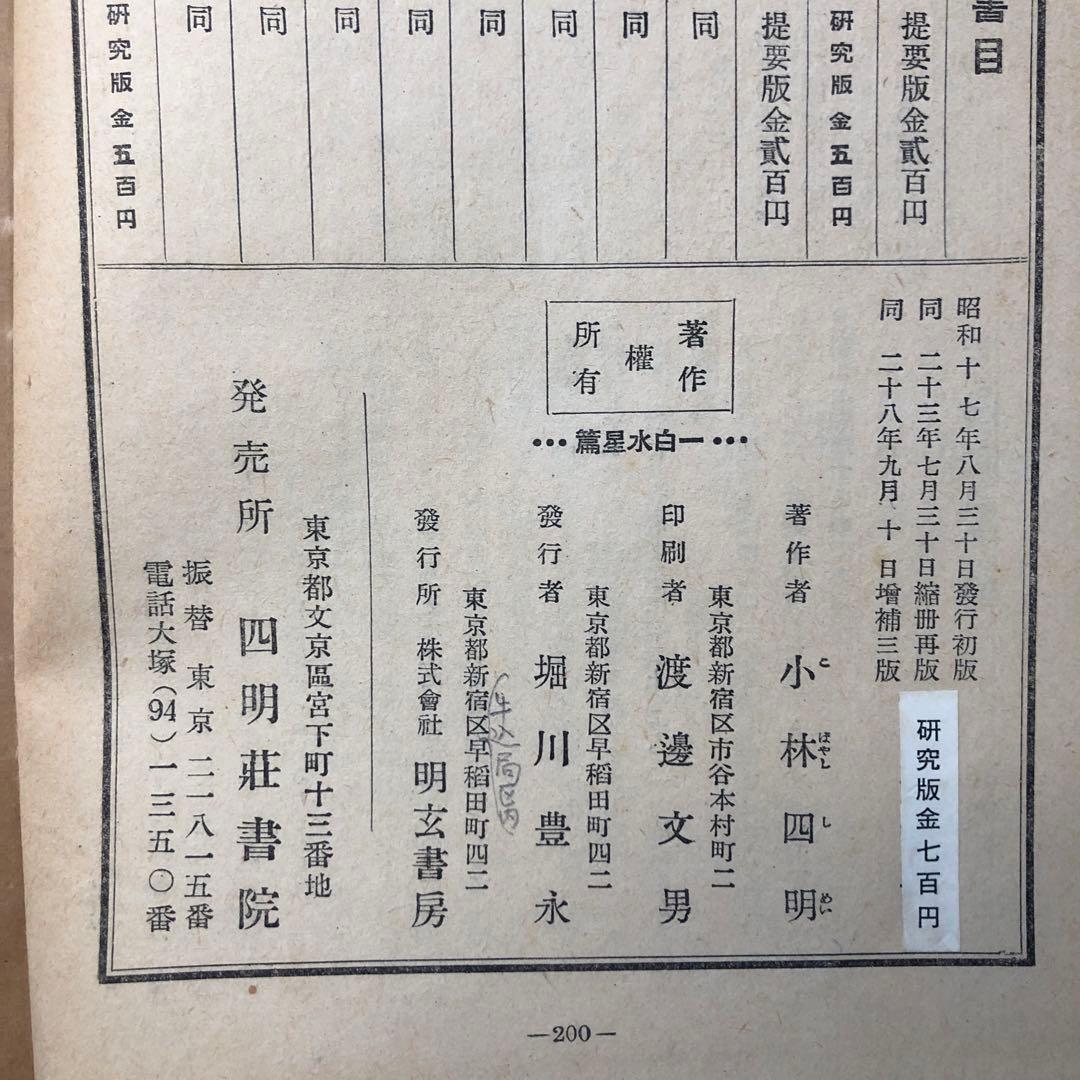 書目
提要版金貳百円
研究版金五百円
提要版金貳百円
同
同
同
同
同
同
同
同
研究版金五百円
昭和十七年八月三十日發行初版
同 二十三年七月三十日縮冊再版
同 二十八年九月十日增補三版
研究版金七百円
著作權所有
…一白水星篇…
著作者 小林四明
こばやししめい
東京都新宿区市谷本村町二
印刷者 渡邊文男
東京都新宿区早稲田町四二
發行者 堀川豊永
東京都新宿区早稲田町四二
(牛込局区内
發行所 株式會社 明玄書房
東京都文京區宮下町十三番地
発売所 四明莊書院
振替東京二一八一五番
電話大塚(94)一三五〇番
—200—